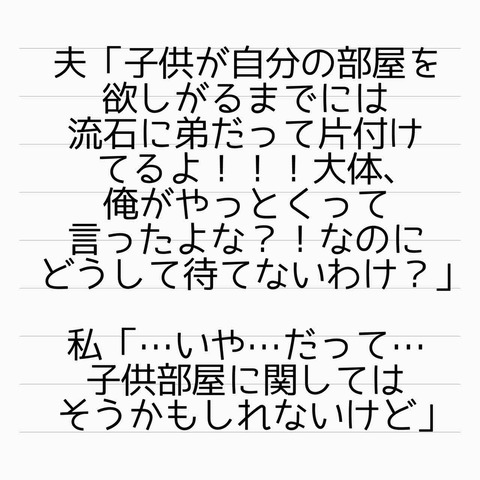 夫「子供が自分の部屋を
欲しがるまでには
流石に弟だって片付け
てるよ！！！大体、
俺がやっとくって
言ったよな？！なのに
どうして待てないわけ？」
私「…いや…だって…
子供部屋に関しては
そうかもしれないけど」